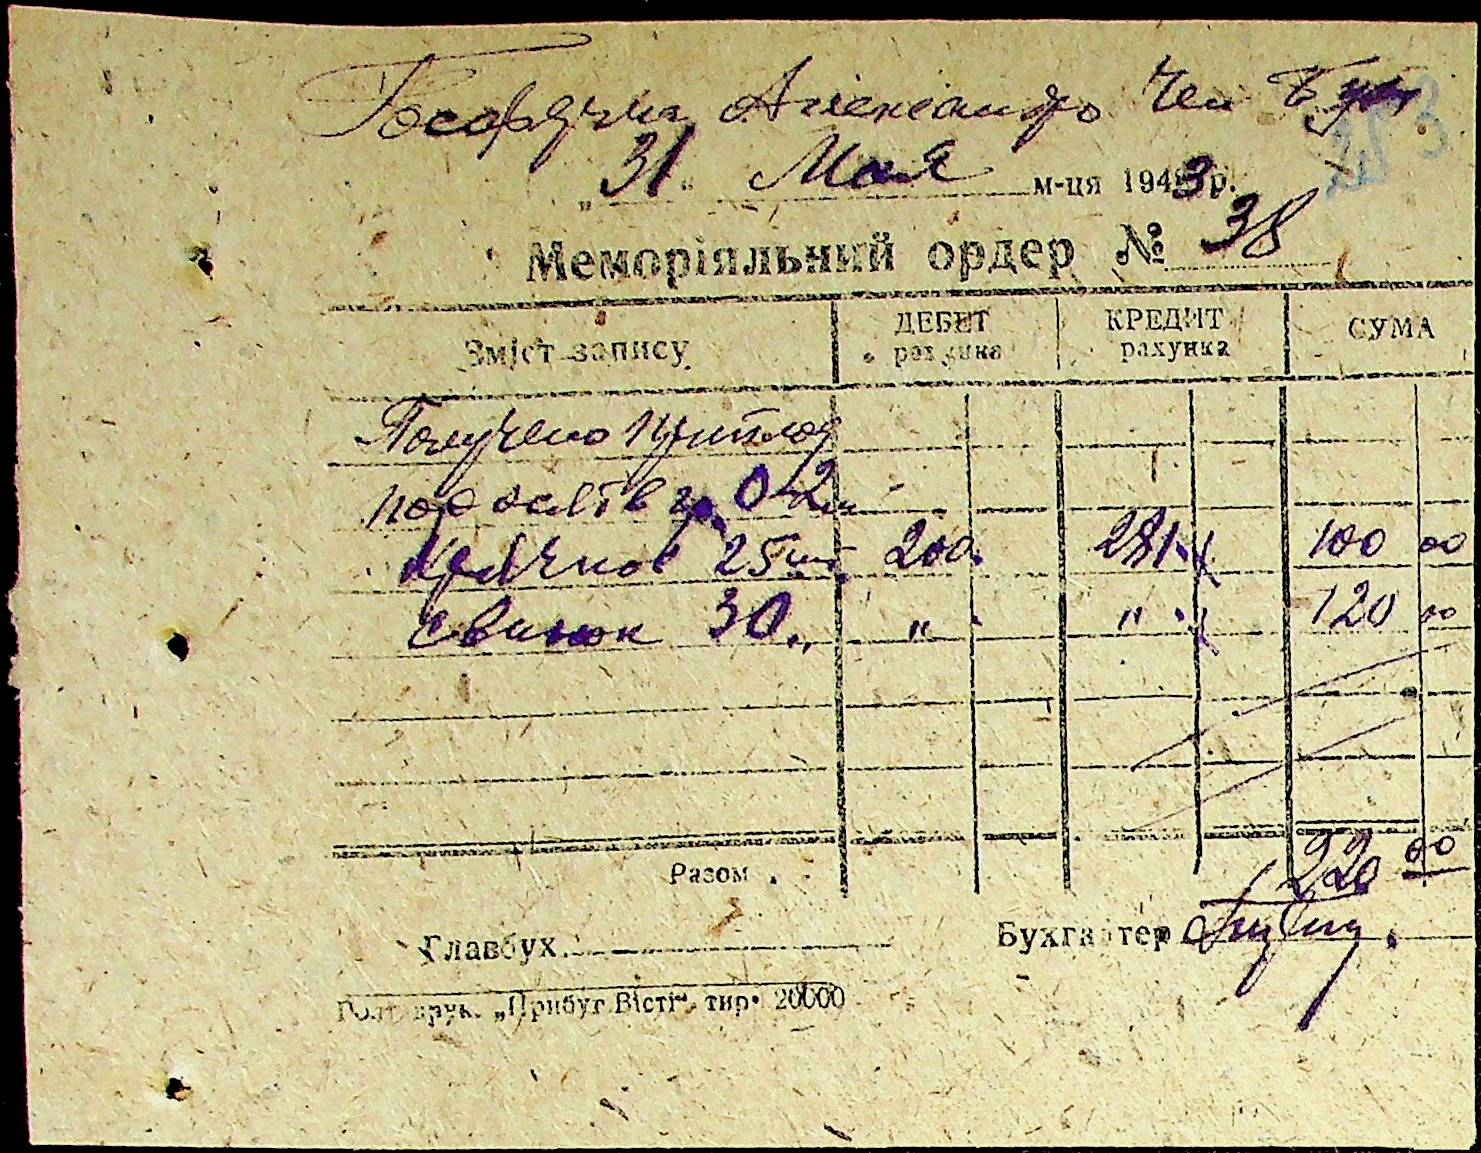 Александро
„31“ Мая м-ця 1943 р.
Меморіяльний ордер № 38
Зміст запису ДЕБЕТ рахунка КРЕДИТ рахунка СУМА
Получено приплод
0-2 м
25 шт. 200. 281. 100 00
свинок 30 „ „ „ 120 00
Разом . 220 00
Главбух. Бухгалтер
Голт. друк. „Прибуг. Вісті“ тир. 20000